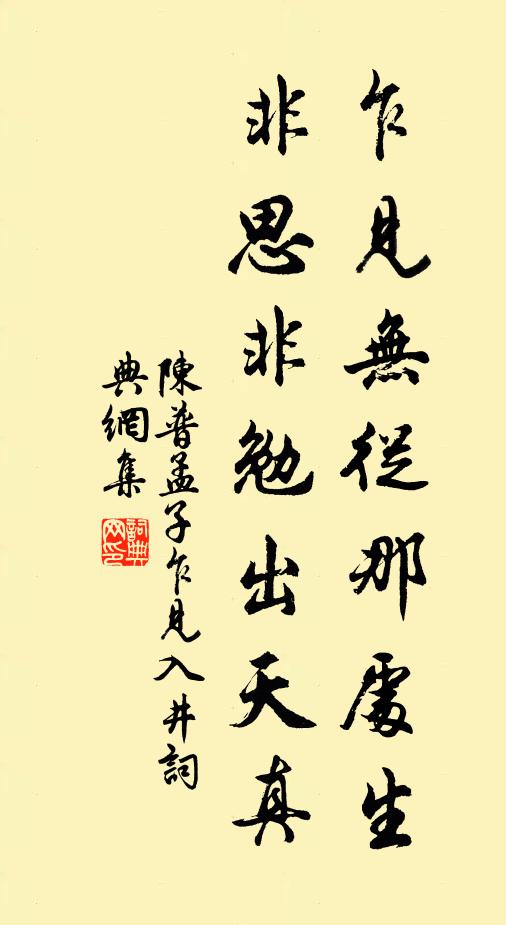 乍見無從那處生
非思非勉出天真
陳普孟子乍見入井詞
典網集
詞典
网印